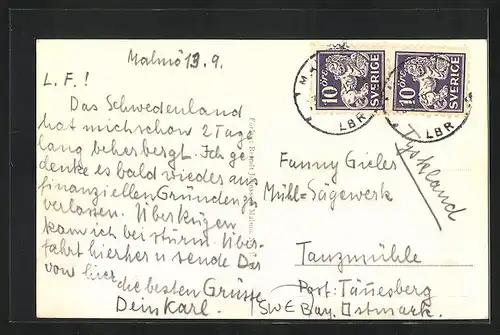 Malmö 13.9.
L. F. !
Das Schwedenland
hat mich schon 2 Tage
lang beherbergt. Ich ge-
denke es bald wieder aus
finanziellen Gründen zu
verlassen. Über Rügen
kam ich bei Sturm. Über-
fahrt hierher u. sende Dir
von hier die besten Grüsse
Dein Karl.
10 öre SVERIGE
10 öre SVERIGE
LBR
LBR
Tyskland
Fanny Gieler
Mühl= Sägewerk
Tanzmühle
Post: Tännesberg
Bay. Ostmark.